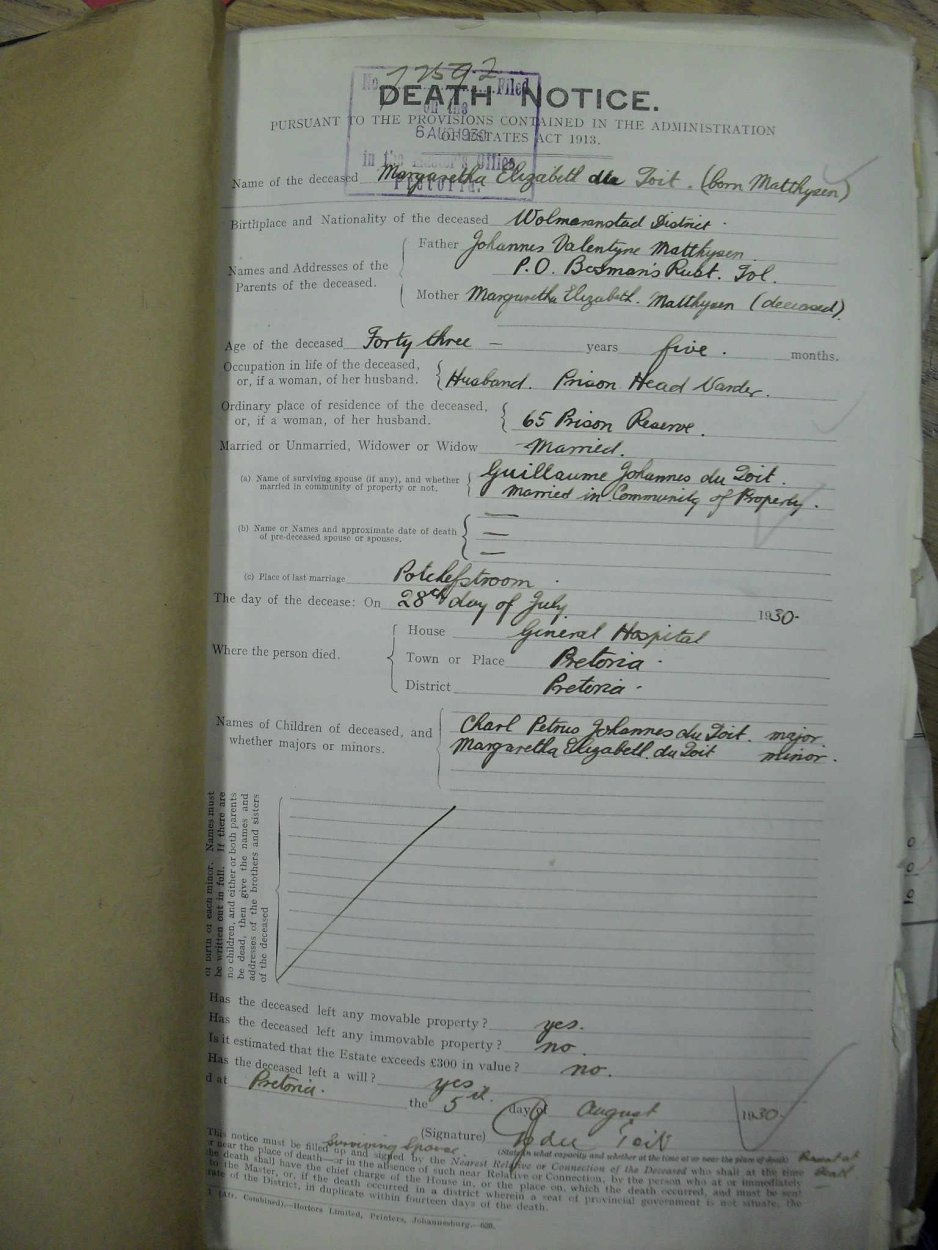 No. 72592 Filed
on the
6 AUG 1930
in the Master's Office
Pretoria.
DEATH NOTICE.
PURSUANT TO THE PROVISIONS CONTAINED IN THE ADMINISTRATION
OF ESTATES ACT 1913.
Name of the deceased Margaretha Elizabeth du Toit. (born Matthysen)
Birthplace and Nationality of the deceased Wolmaranstad District.
Names and Addresses of the Parents of the deceased.
Father Johannes Valentyne Matthysen.
P.O. Bosman's Rust. Tvl.
Mother Margaretha Elizabeth. Matthysen (deceased).
Age of the deceased Forty three — years five. months.
Occupation in life of the deceased,
or, if a woman, of her husband. Husband. Prison Head Warder.
Ordinary place of residence of the deceased,
or, if a woman, of her husband. 65 Prison Reserve.
Married or Unmarried, Widower or Widow Married.
(a) Name of surviving spouse (if any), and whether
married in community of property or not.
Guillaume Johannes du Toit.
Married in Community of Property.
(b) Name or Names and approximate date of death
of pre-deceased spouse or spouses.
(c) Place of last marriage Potchefstroom.
The day of the decease: On 28th day of July 1930.
Where the person died.
House General Hospital
Town or Place Pretoria.
District Pretoria.
Names of Children of deceased, and
whether majors or minors.
Charl Petrus Johannes du Toit. major.
Margaretha Elizabeth. du Toit minor.
of birth of each minor. Names must
be written out in full. If there are
no children, and either or both parents
be dead, then give the names and
addresses of the brothers and sisters
of the deceased
Has the deceased left any movable property? yes.
Has the deceased left any immovable property? no.
Is it estimated that the Estate exceeds £300 in value? no.
Has the deceased left a will? yes
d at Pretoria. the 5th day of August 1930.
(Signature) du Toit
Surviving Spouse.
(State in what capacity and whether at the time at or near the place of death) Present at Death
This notice must be filled up and signed by the Nearest Relative or Connection of the Deceased who shall at the time
or near the place of death—or in the absence of such near Relative or Connection, by the person who at or immediately
the death shall have the chief charge of the House in, or the place on, which the death occurred, and must be sent
to the Master, or, if the death occurred in a district wherein a seat of provincial government is not situate, the
rate of the District, in duplicate within fourteen days of the death.
(Att. Combined).—Hortors Limited, Printers, Johannesburg.